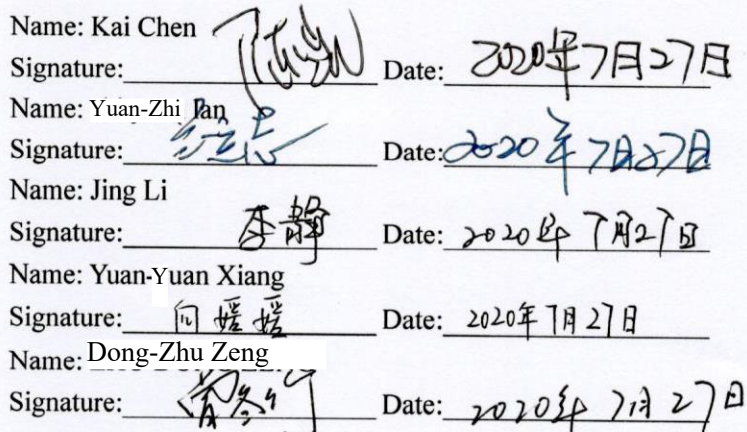 Name: Kai Chen
Signature: Date: 2020年7月27日
Name: Yuan-Zhi Tan
Signature: Date: 2020年7月27日
Name: Jing Li
Signature: 李静 Date: 2020年7月27日
Name: Yuan-Yuan Xiang
Signature: 向媛媛 Date: 2020年7月27日
Name: Dong-Zhu Zeng
Signature: Date: 2020年7月27日